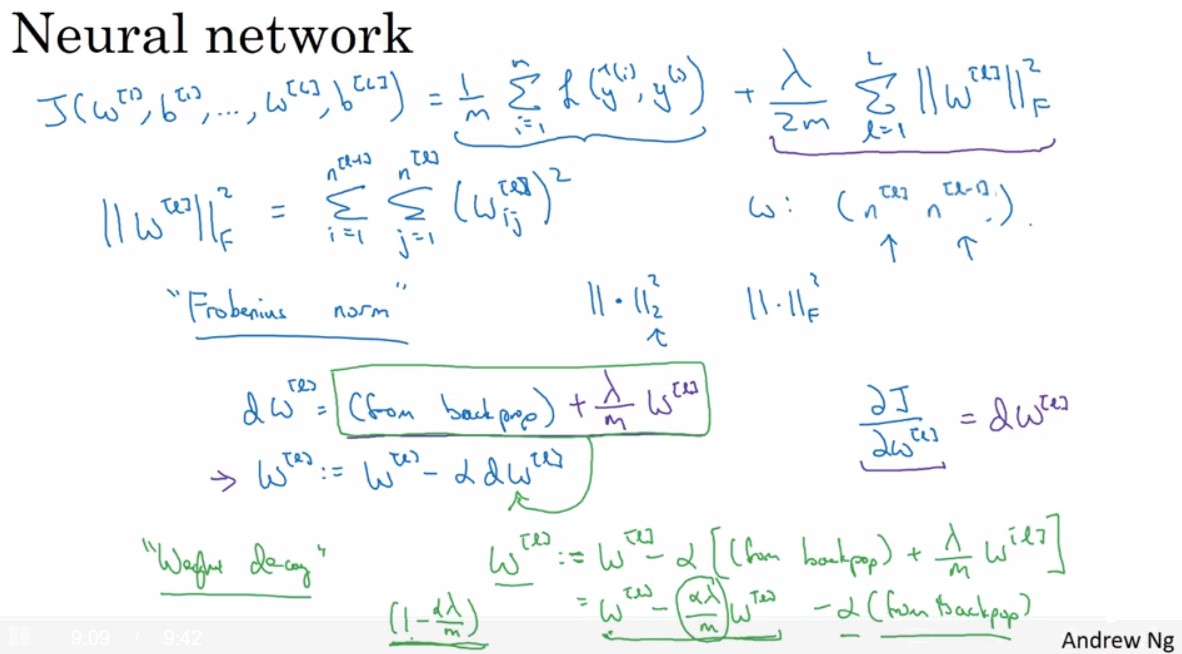 Neural network
J(w^[1], b^[1], ..., w^[L], b^[L]) = 1/m Σ_{i=1}^{n} L(ŷ^(i), y^(i)) + λ/2m Σ_{l=1}^{L} ||w^[l]||_F^2
||w^[l]||_F^2 = Σ_{i=1}^{n^[l-1]} Σ_{j=1}^{n^[l]} (w_ij^[l])^2    w: (n^[l] n^[l-1]).
↑ ↑
"Frobenius norm"    ||·||_2^2    ||·||_F^2
↑
dw^[l] = (from backprop) + λ/m w^[l]    ∂J/∂w^[l] = dw^[l]
→ w^[l] := w^[l] - α dw^[l]
"Weight decay"    w^[l] := w^[l] - α [(from backprop) + λ/m w^[l]]
(1 - αλ/m)    = w^[l] - αλ/m w^[l] - α (from backprop)
9:09 / 9:42
Andrew Ng